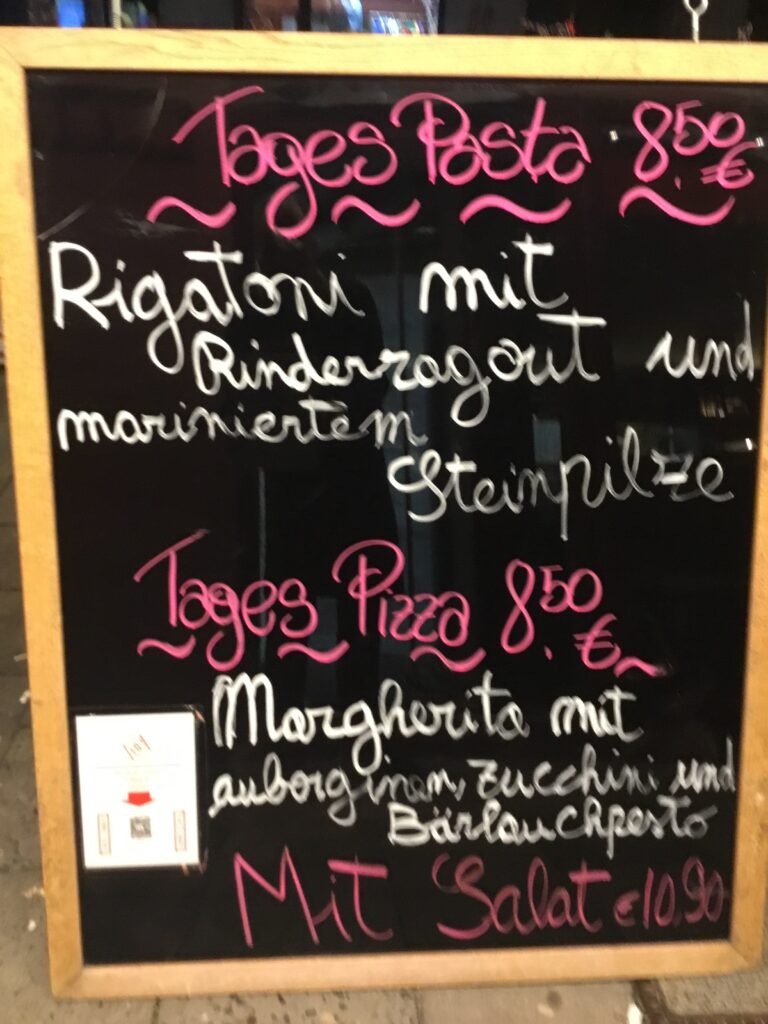 Tages Pasta 8.50 €
Rigatoni mit
Rinderragout und
mariniertem
Steinpilze
Tages Pizza 8.50 €
Margherita mit
auborginen, zucchini und
Bärlauchpesto
Mit Salat € 10,90